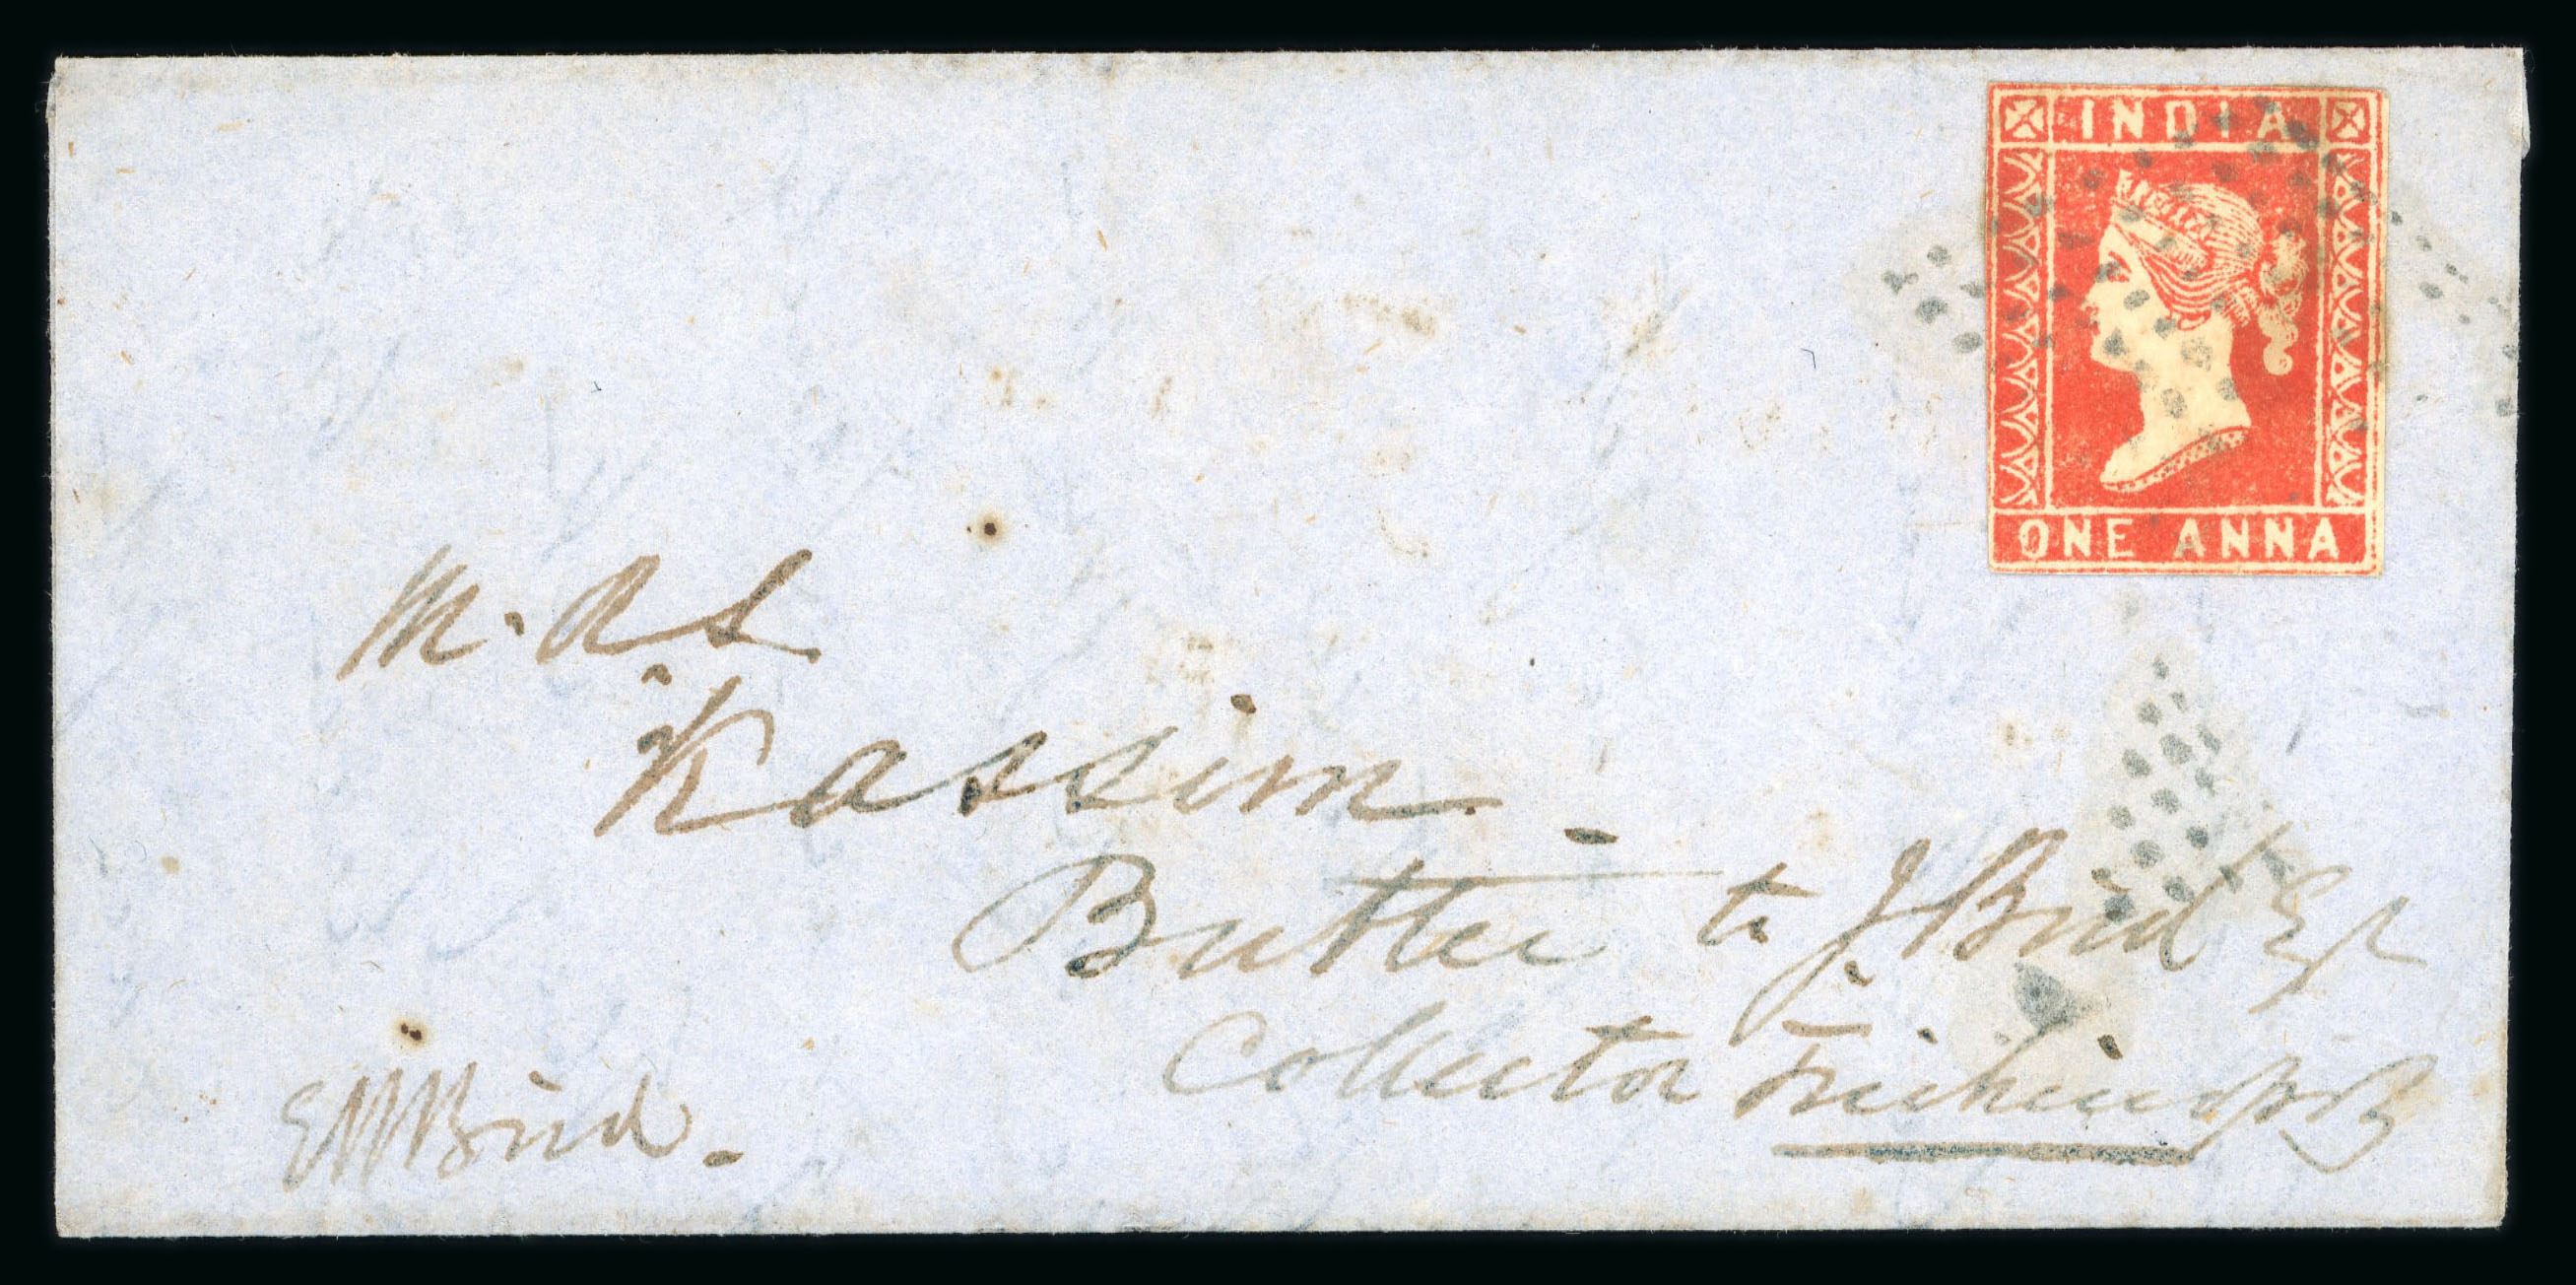 INDIA
ONE ANNA
M. R S
Kassim
Butler to J. Bird Esq
Collector Trichinopoly
E W Bird.